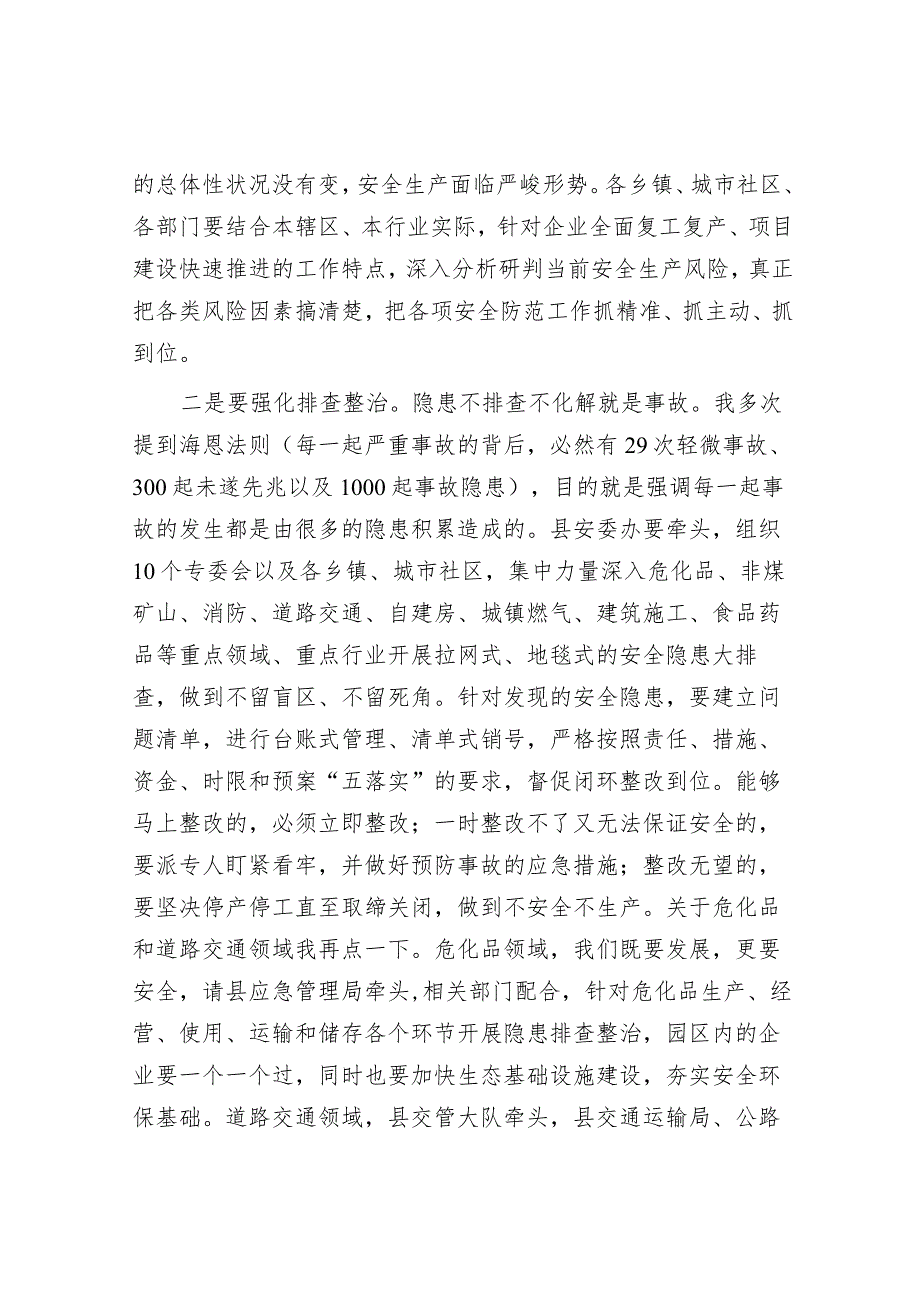 的总体性状况没有变，安全生产面临严峻形势。各乡镇、城市社区、
各部门要结合本辖区、本行业实际，针对企业全面复工复产、项目
建设快速推进的工作特点，深入分析研判当前安全生产风险，真正
把各类风险因素搞清楚，把各项安全防范工作抓精准、抓主动、抓
到位。
二是要强化排查整治。隐患不排查不化解就是事故。我多次
提到海恩法则（每一起严重事故的背后，必然有29次轻微事故、
300起未遂先兆以及1000起事故隐患），目的就是强调每一起事
故的发生都是由很多的隐患积累造成的。县安委办要牵头，组织
10个专委会以及各乡镇、城市社区，集中力量深入危化品、非煤
矿山、消防、道路交通、自建房、城镇燃气、建筑施工、食品药
品等重点领域、重点行业开展拉网式、地毯式的安全隐患大排
查，做到不留盲区、不留死角。针对发现的安全隐患，要建立问
题清单，进行台账式管理、清单式销号，严格按照责任、措施、
资金、时限和预案“五落实”的要求，督促闭环整改到位。能够
马上整改的，必须立即整改；一时整改不了又无法保证安全的，
要派专人盯紧看牢，并做好预防事故的应急措施；整改无望的，
要坚决停产停工直至取缔关闭，做到不安全不生产。关于危化品
和道路交通领域我再点一下。危化品领域，我们既要发展，更要
安全，请县应急管理局牵头,相关部门配合，针对危化品生产、经
营、使用、运输和储存各个环节开展隐患排查整治，园区内的企
业要一个一个过，同时也要加快生态基础设施建设，夯实安全环
保基础。道路交通领域，县交管大队牵头，县交通运输局、公路